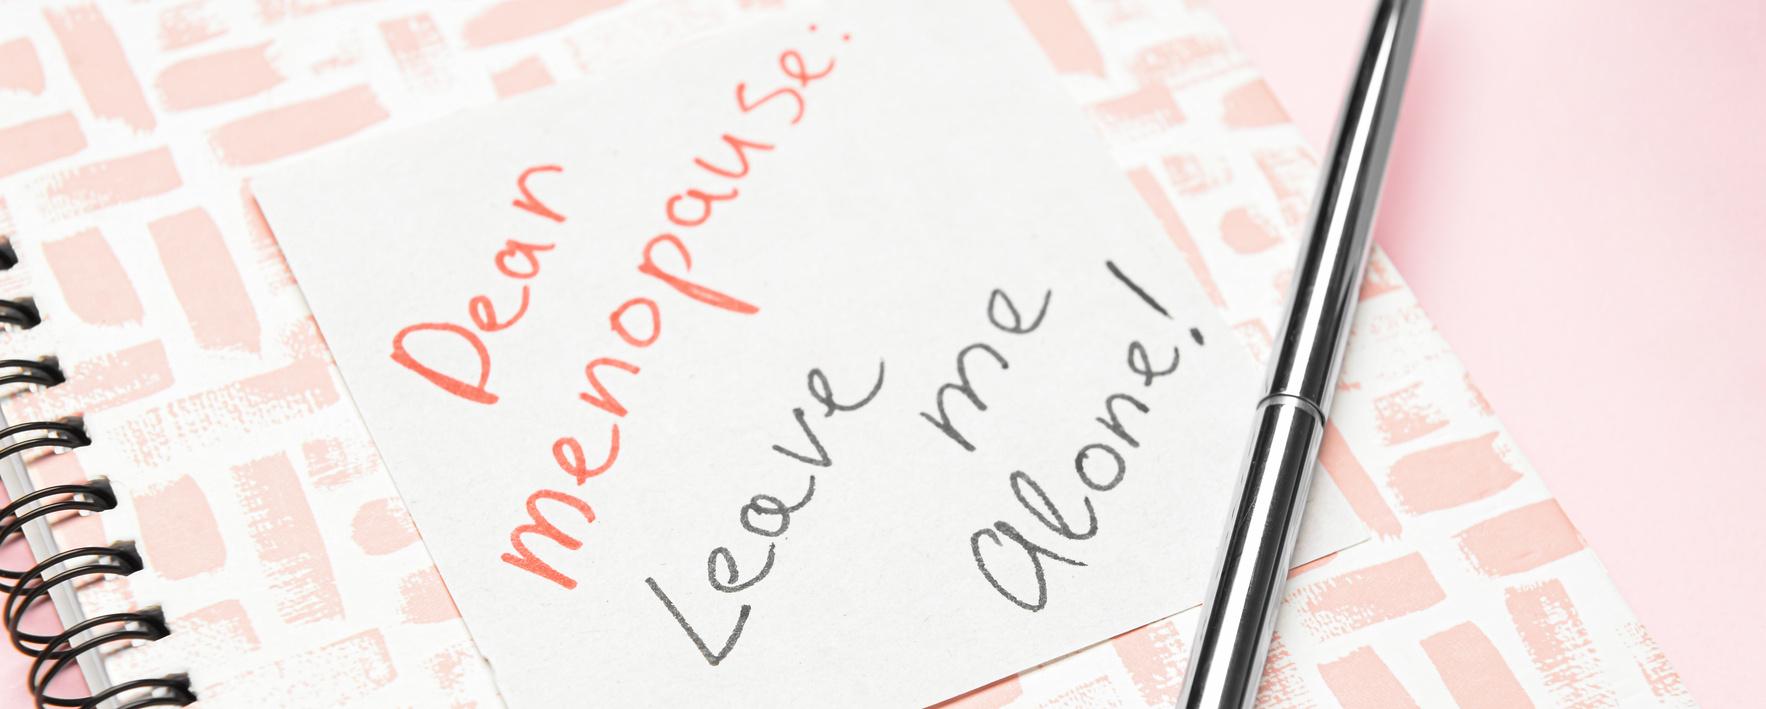 Dear
menopause:
Leave me
alone!